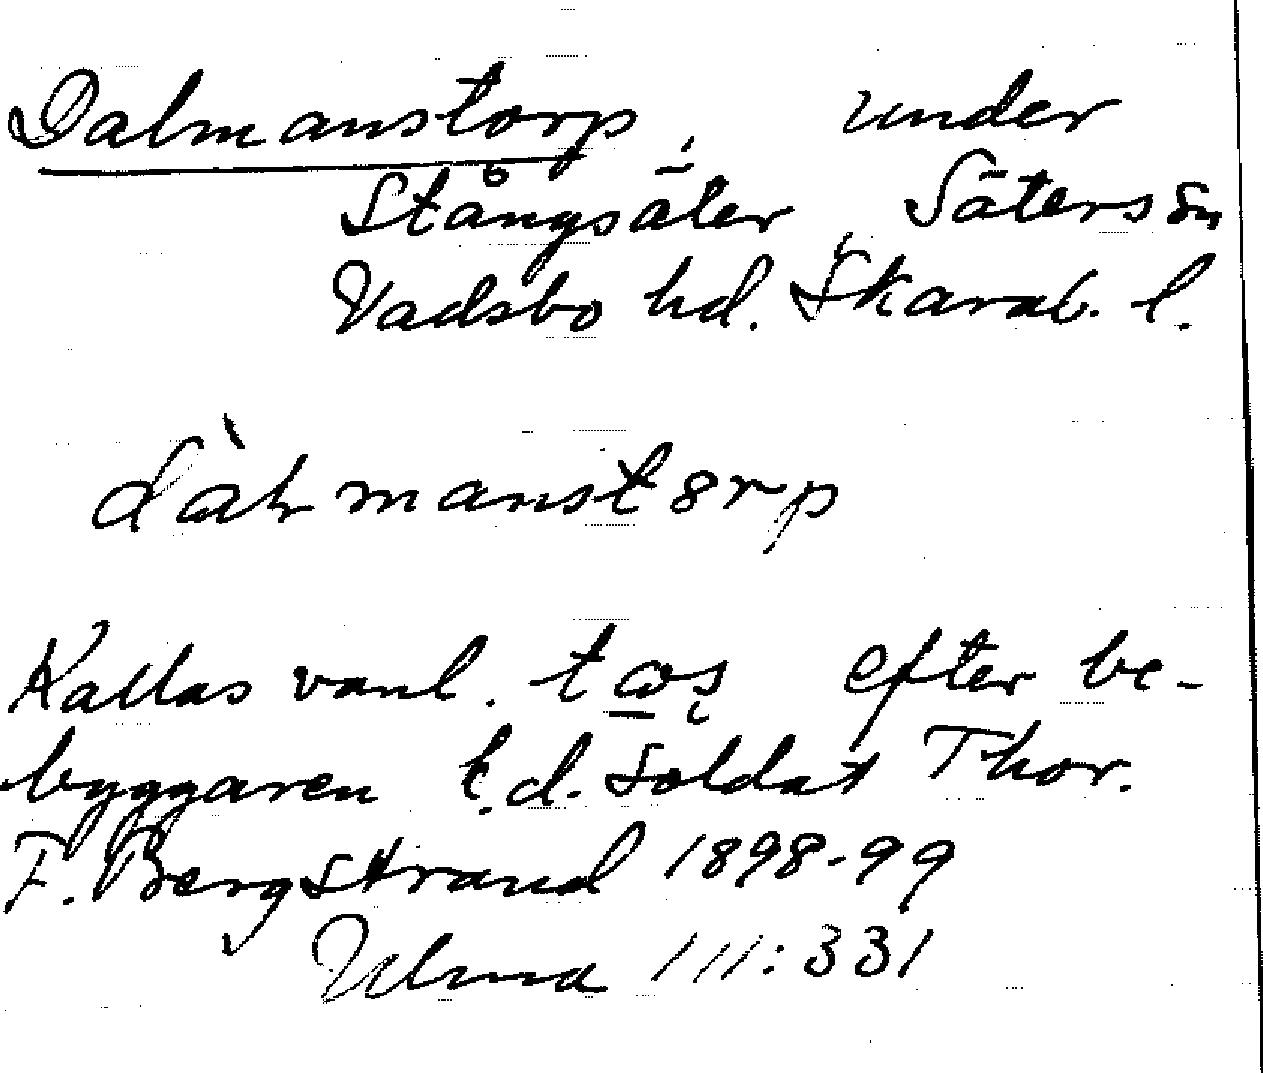 Dalmanstorp, under
Stångsäter Säters sn
Vadsbo hd. Skarab. l.
dàlmanstorp
Kallas vanl. efter be-
byggaren f.d. soldat Thor.
F. Bergstrand 1898-99
Ulma 111:331